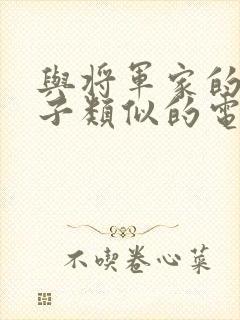 與將軍家的
子類似的電
不喫卷心菜